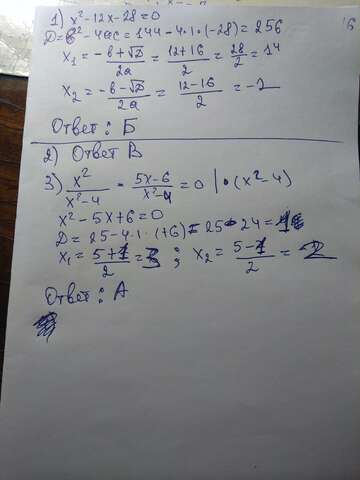 1) x²-12x-28=0
D=b²-4ac=144-4·1·(-28)=256
x₁=(-b+√D)/2a=(12+16)/2=28/2=14
x₂=(-b-√D)/2a=(12-16)/2=-2
Ответ: Б
2) Ответ В
3) x²/(x²-4)-(5x-6)/(x²-4)=0 |·(x²-4)
x²-5x+6=0
D=25-4·1·(+6)=25-24=1
x₁=(5+1)/2=3; x₂=(5-1)/2=2
Ответ: А